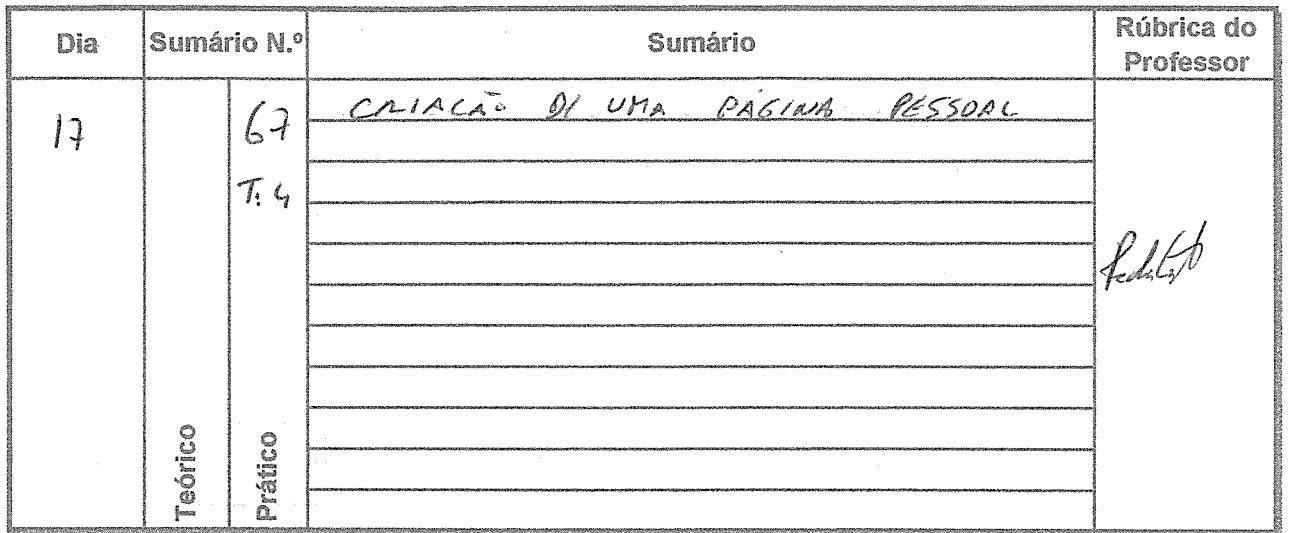 Dia Sumário N.º Sumário Rúbrica do Professor
17 67 CRIAÇÃO DE UMA PÁGINA PESSOAL
T: 4
Teórico Prático